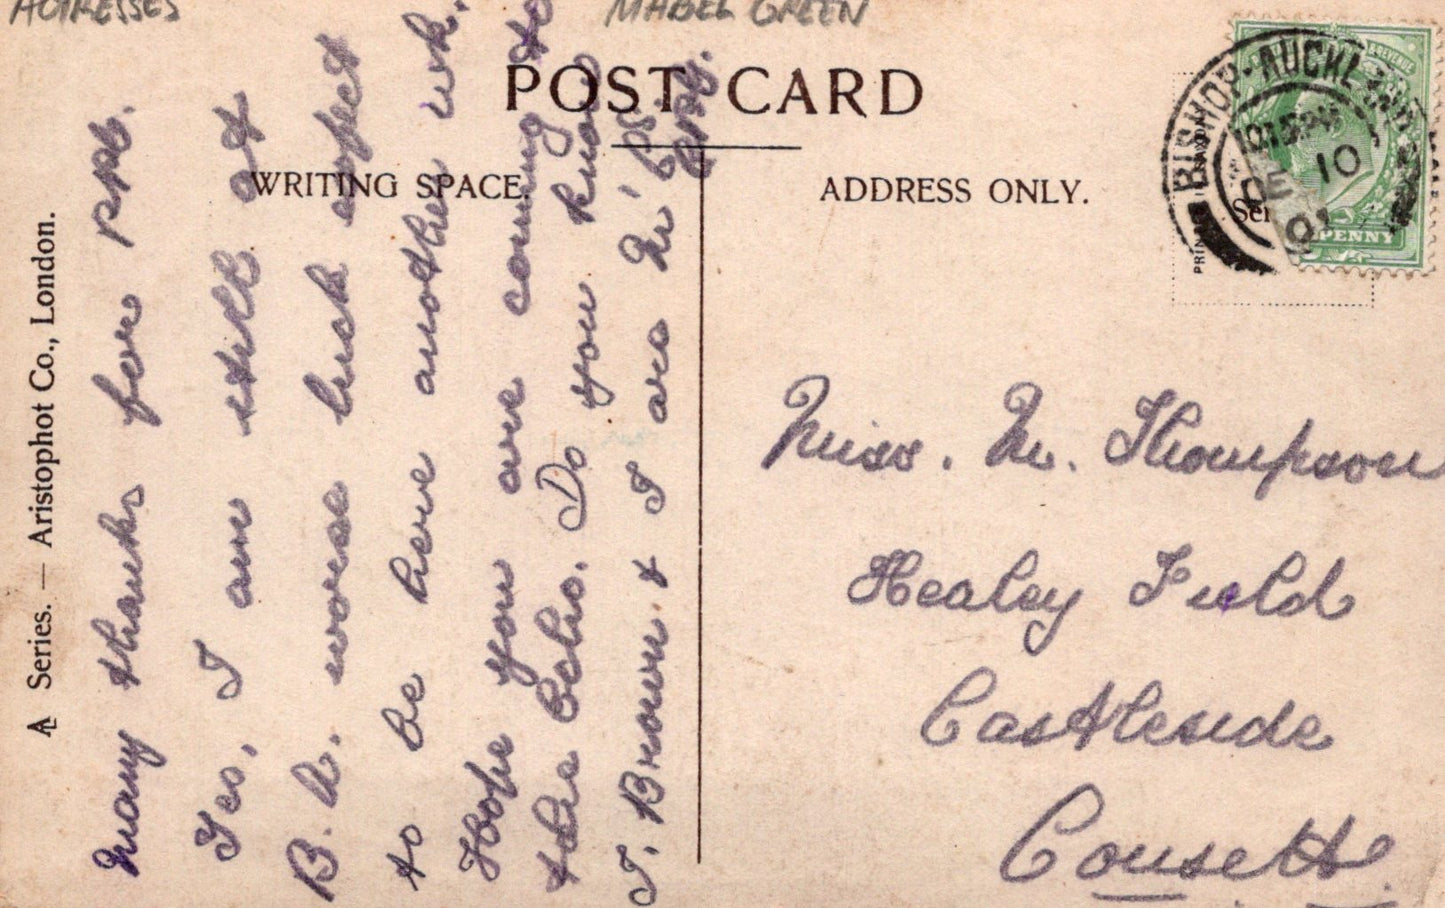 ACTRESSES
MABEL GREEN
POST CARD
WRITING SPACE.
ADDRESS ONLY.
A Series. — Aristophot Co., London.
Many thanks for ppc.
Yes, I am still at
B. A. worse luck expect
to be here another wk.
Hope you are coming to
the Echo. Do you know
J. Brown & I are
Miss. M. Thompson
Healey Field
Castleside
Consett.
BISHOP-AUCKLAND
10.15PM
DE 10
PENNY